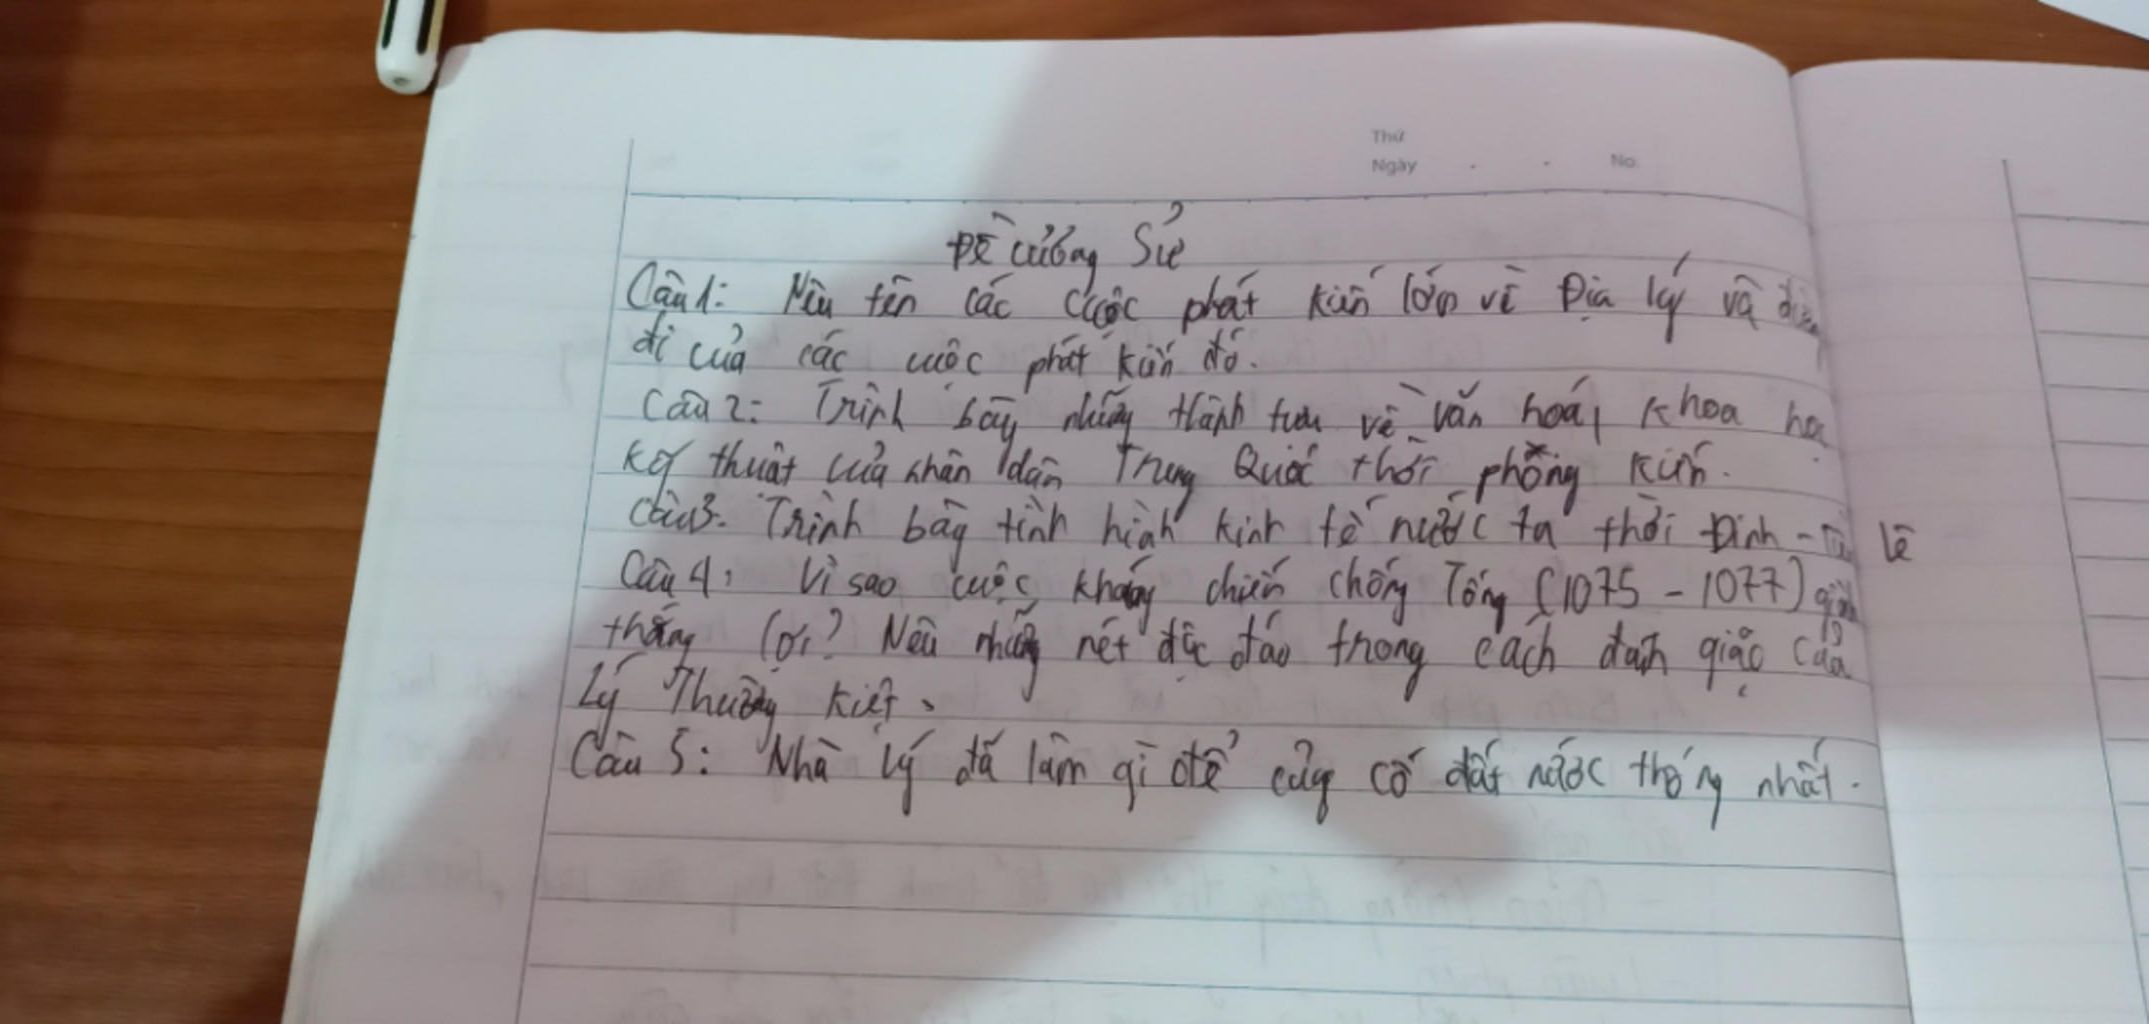 Thứ
Ngày . . No.
Đề cương Sử
Câu 1: Nêu tên các cuộc phát kiến lớn về Địa lý và
đi của các cuộc phát kiến đó.
Câu 2: Trình bày những thành tựu về văn hoá, khoa học
kỹ thuật của nhân dân Trung Quốc thời phong kiến.
Câu 3. Trình bày tình hình kinh tế nước ta thời Đinh - Tiền Lê
Câu 4: Vì sao cuộc kháng chiến chống Tống (1075 - 1077)
thắng lợi? Nêu những nét độc đáo trong cách đánh giặc của
Lý Thường Kiệt.
Câu 5: Nhà Lý đã làm gì để củng cố đất nước thống nhất.